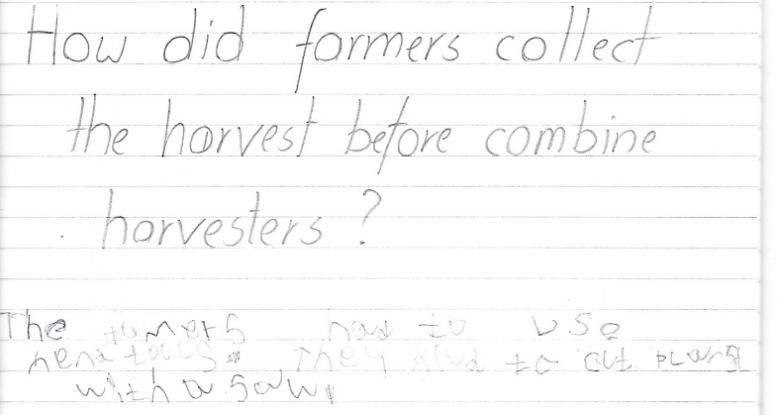 How did farmers collect
the harvest before combine
harvesters?
The fumers had to use
hend tools. They had to cut
with a saw